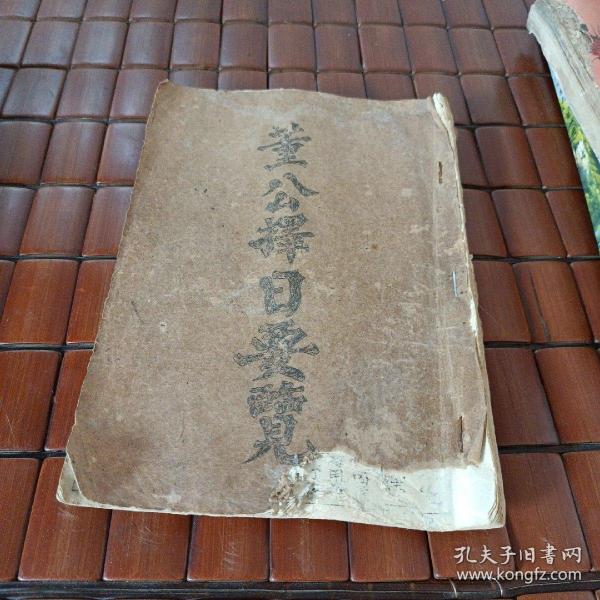 董公擇日要覽
孔夫子旧书网
www.kongfz.com